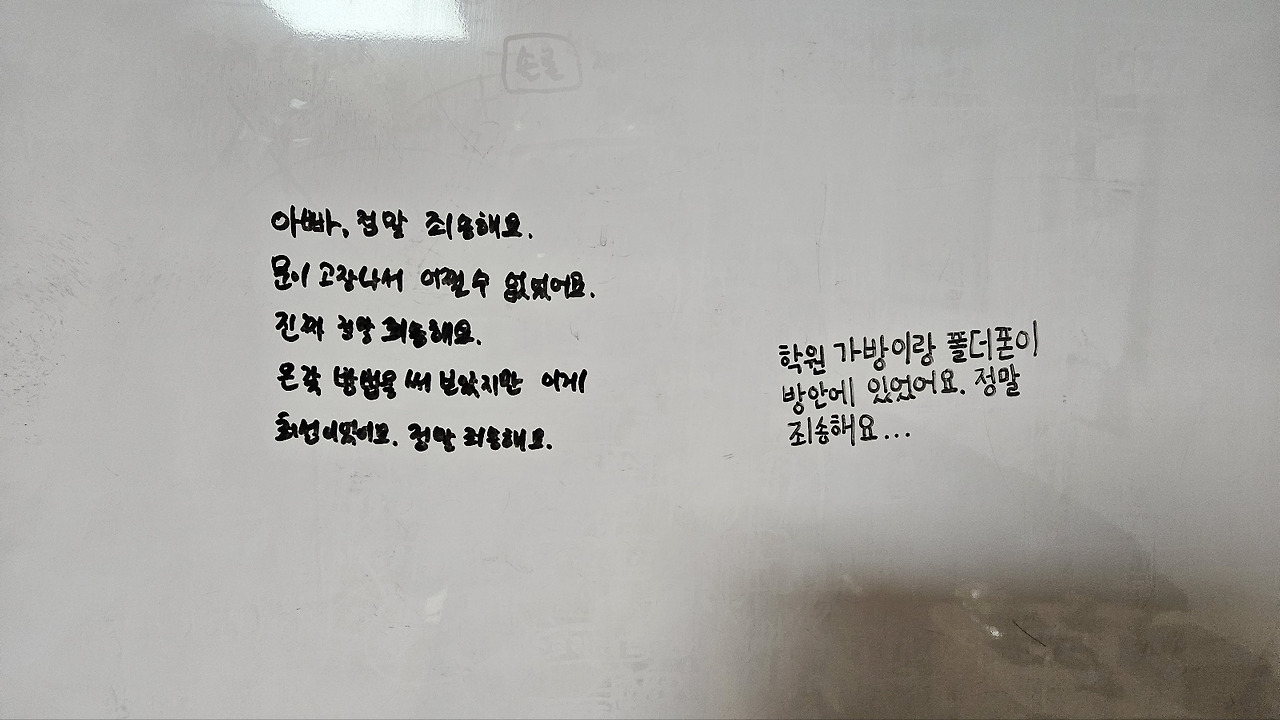 손글
아빠, 정말 죄송해요.
문이 고장나서 어쩔 수 없었어요.
진짜 정말 죄송해요.
온갖 방법을 써 보았지만 이게
최선이었어요. 정말 죄송해요.
학원 가방이랑 폴더폰이
방안에 있었어요. 정말
죄송해요...